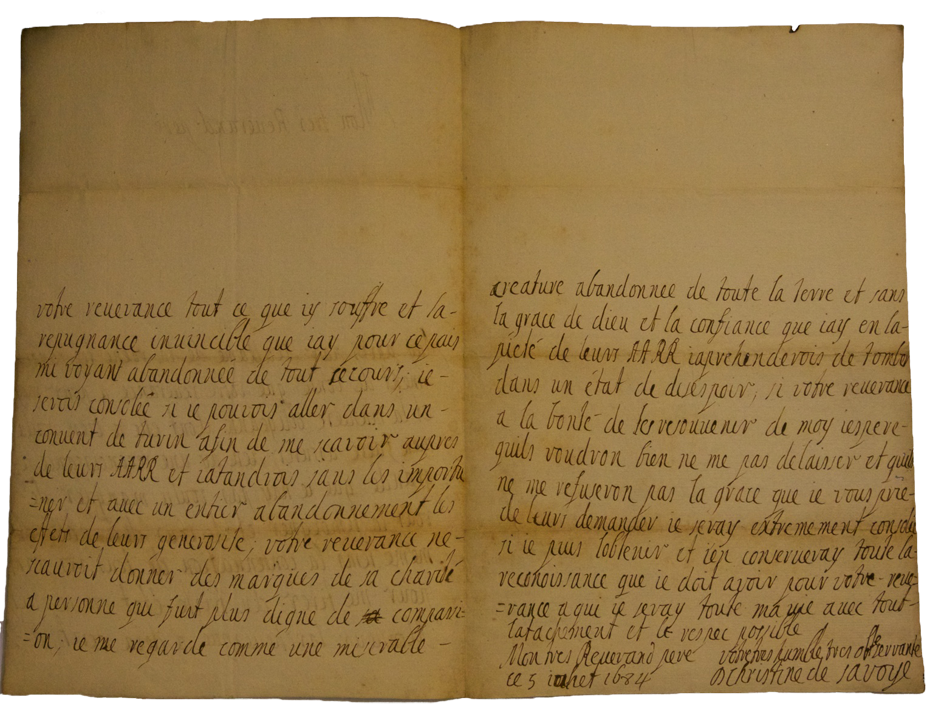 votre reuerance tout ce que iy souffre et la-
repugnance inuincible que iay pour ce pais
mi voyant abandonnée de tout secours; ie-
serois consolée si ie pouvois aller dans un-
conuent de turin afin de me scavoir aupres
de leurs AARR et iatandrois sans les importu
=ner et avec un entier abandonnement les
efets de leurs generosité, votre reuerance ne-
scauroit donner des marques de sa charité
a personne qui fust plus digne de compasi=
=on, ie me regarde comme une miserable-
creature abandonnee de toute la terre et sans
la grace de dieu et la confiance que iay en la-
pieté de leurs AARR iaprehenderois de tomber
dans un état de désespoir, si votre reuerance
a la bonté de les resouuenir de moy iespere-
quils voudron bien ne me pas delaisser et quils
ne me refuseron pas la grace que ie vous prie-
de leurs demander ie seray extremement consolée
si ie puis lobtenir et ien conserueray toute la-
reconoissance que ie doit avoir pour votre-reue=
=rance a qui ie seray toute ma vie avec tout-
latachement et le respec possible
Mon tres Reuerand pere votre tres humble tres observante
ce 5 iulhet 1684 christine de savoye
Mon tres Reuerand pere